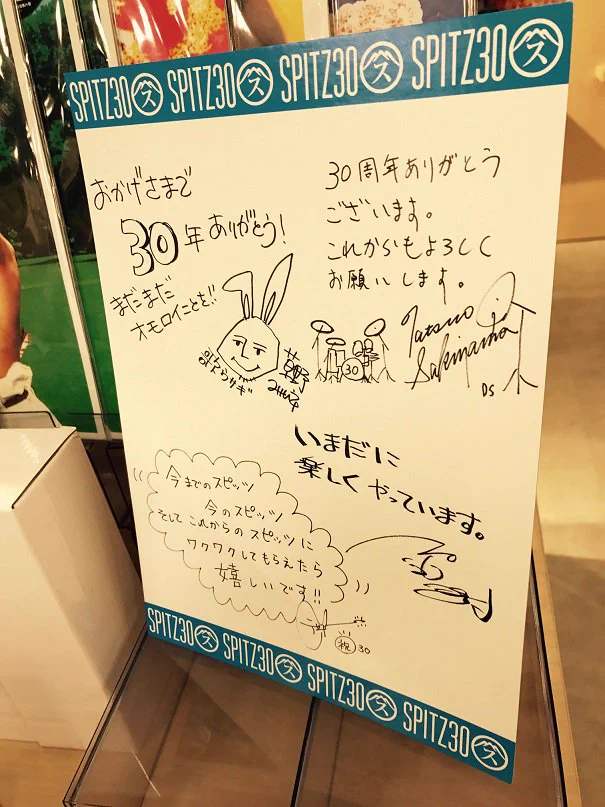 SPITZ30 ス SPITZ30 ス SPITZ30 ス SPITZ30 ス
おかげさまで
30年ありがとう!
まだまだ
オモロイことを!!
草野
30周年ありがとう
ございます。
これからもよろしく
お願いします。
30
Tatsuo
Sakiyama
DS
いまだに
楽しくやっています。
今までのスピッツ
今のスピッツ
そしてこれからのスピッツに
ワクワクしてもらえたら
嬉しいです!!
祝 30
SPITZ30 ス SPITZ30 ス SPITZ30 ス SPITZ30 ス SPITZ30 ス